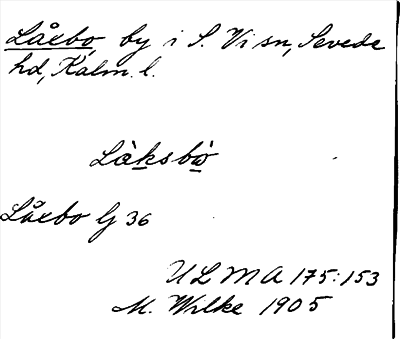 Låxbo, by i S. Vi sn, Sevede
hd, Kalm. l.
Låksbo
Låxbo G 36
ULMA 175:153
M. Wilke 1905